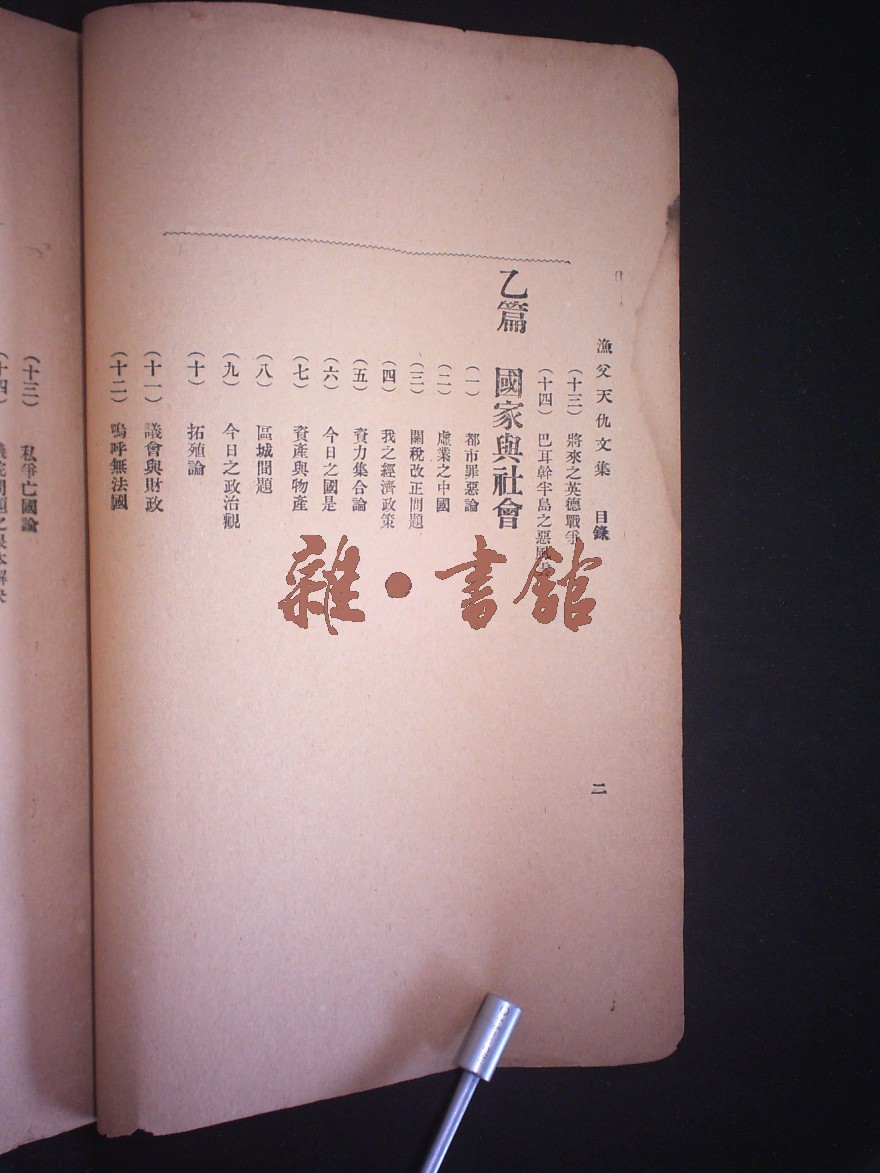 漁父天仇文集　目錄
二
（十三）　將來之英德戰爭
（十四）　巴耳幹半島之惡風
乙篇　國家與社會
（一）　都市罪惡論
（二）　虛業之中國
（三）　關稅改正問題
（四）　我之經濟政策
（五）　資力集合論
（六）　今日之國是
（七）　資產與物產
（八）　區城問題
（九）　今日之政治觀
（十）　拓殖論
（十一）　議會與財政
（十二）　嗚呼無法國
（十三）　私爭亡國論
（十四）　議院問題之根本解決
雜・書館